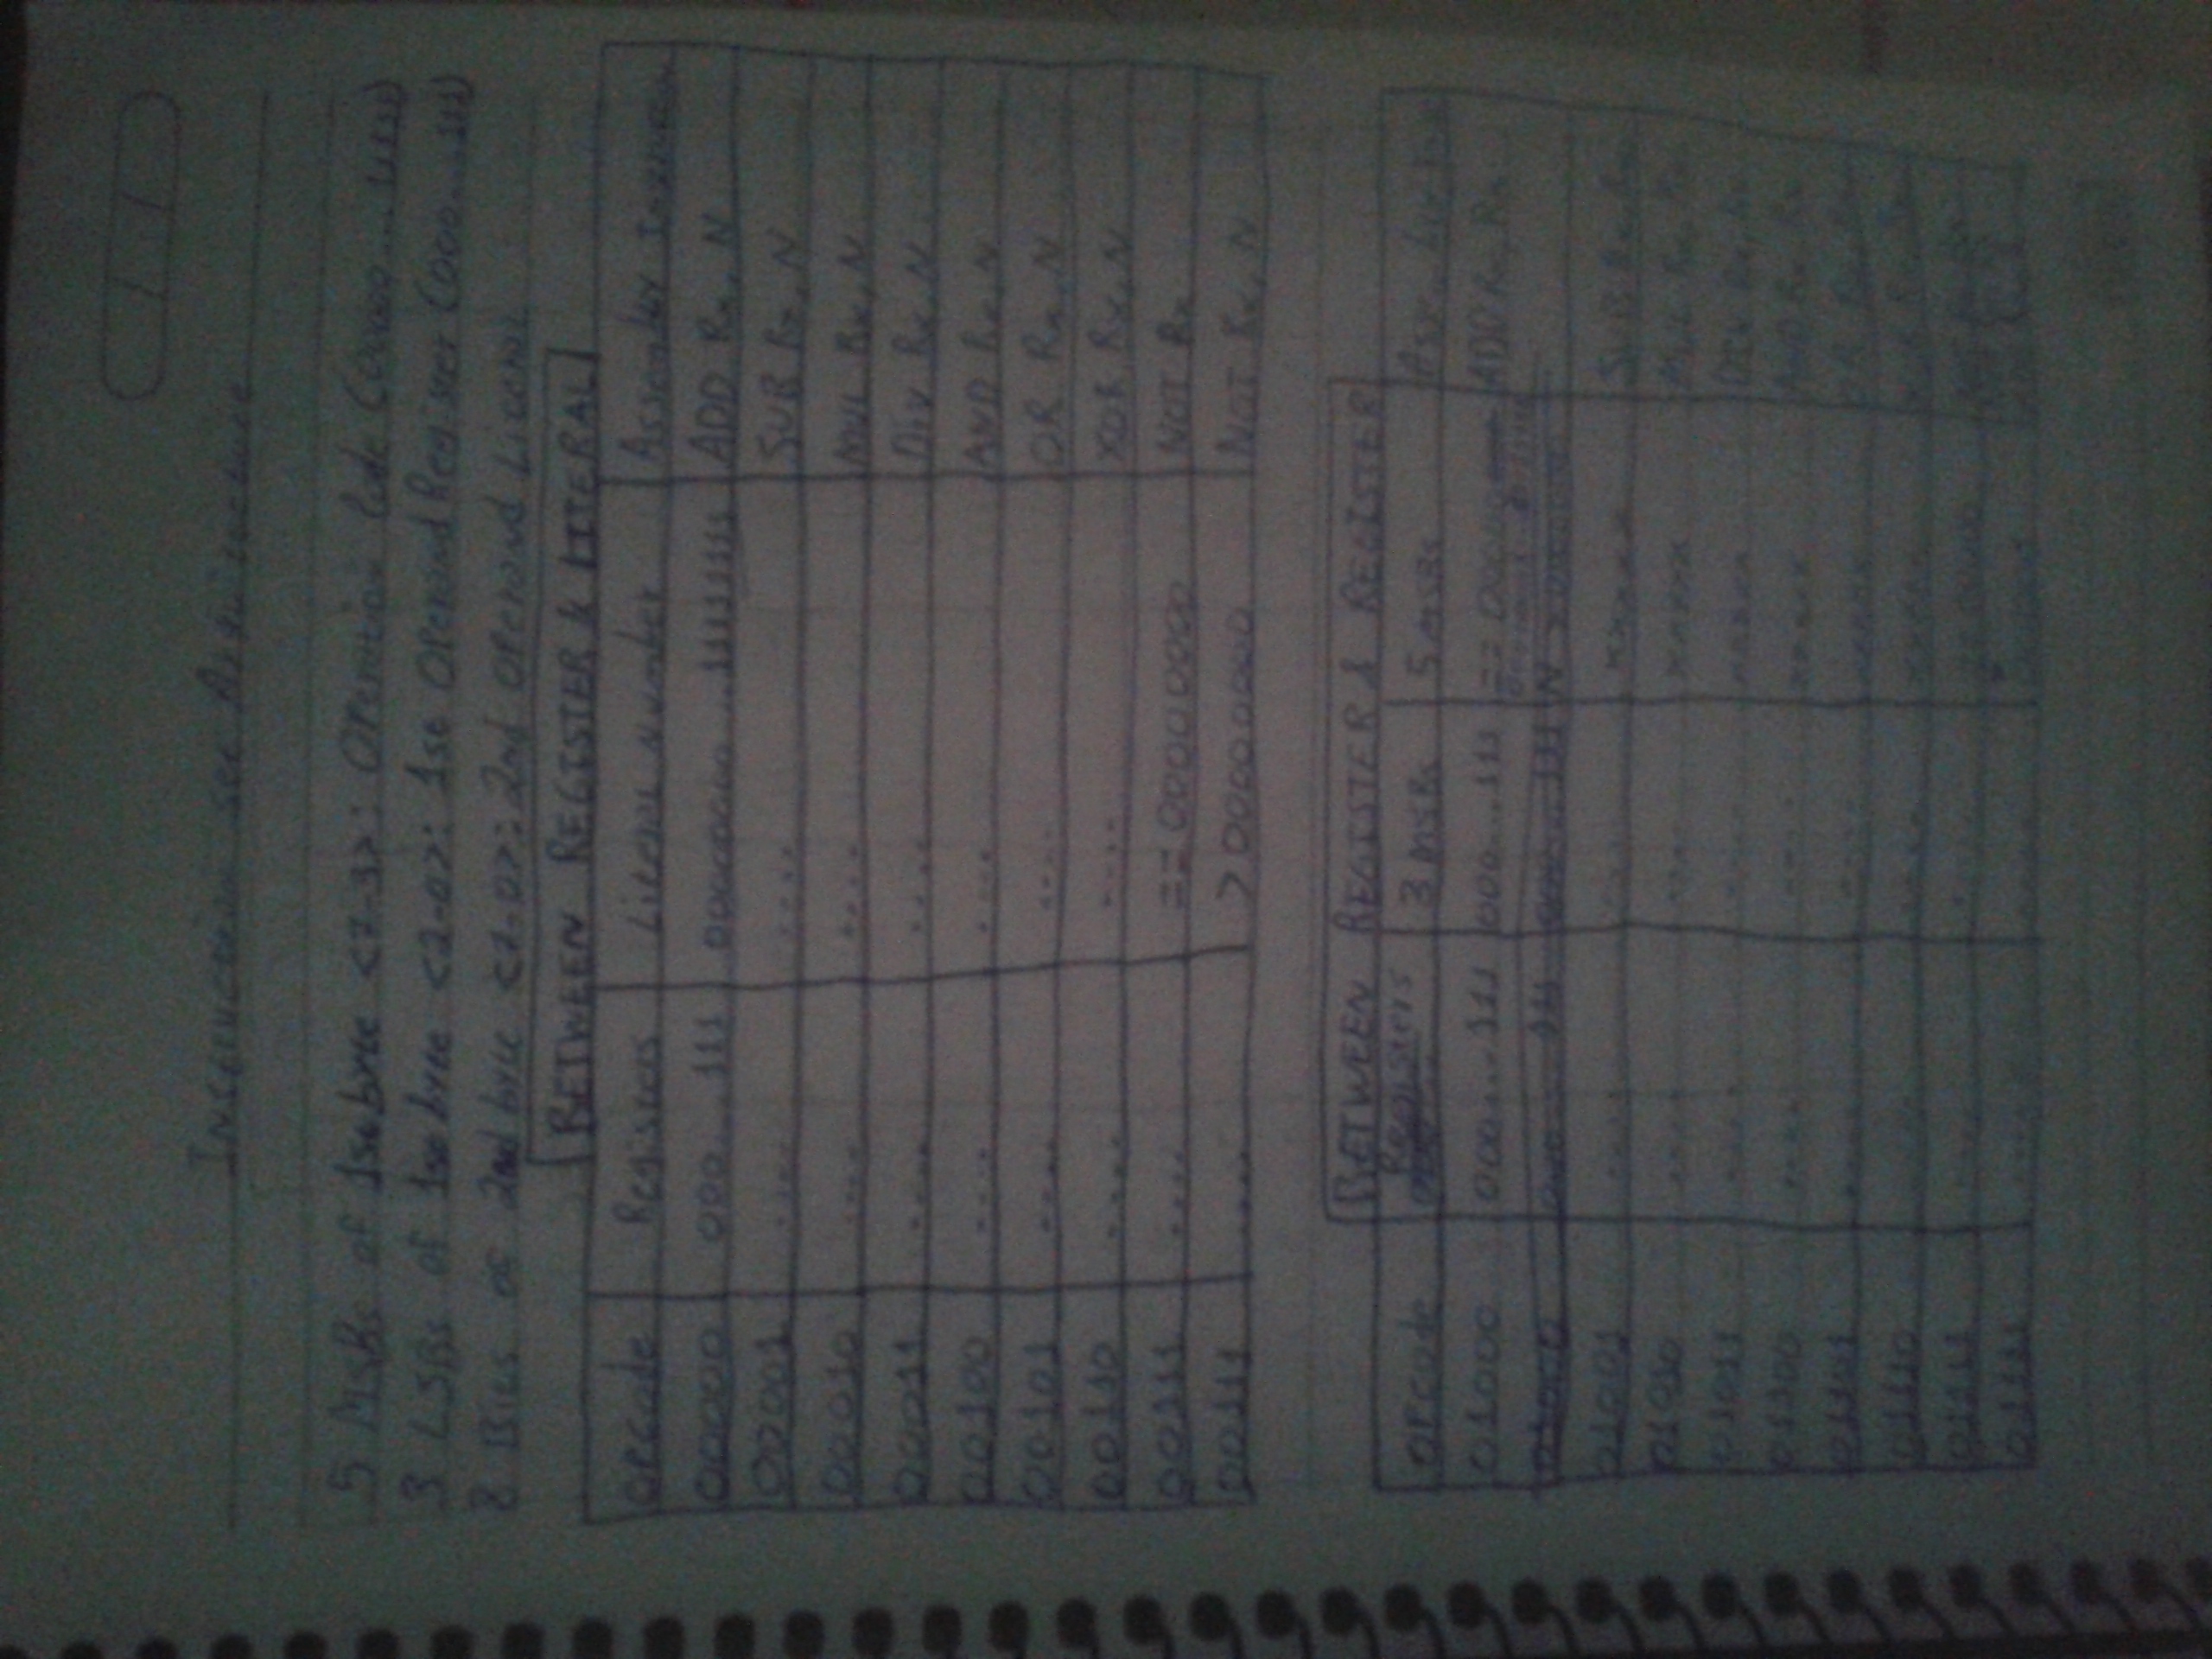 Instruction Set Architecture
5 MSBs of 1st byte <7-3>: Operation Code (00000....11111)
3 LSBs of 1st byte <2-0>: 1st Operand Register (000....111)
8 Bits of 2nd byte <7-0>: 2nd Operand Literal
BETWEEN REGISTER & LITERAL
Opcode Registers Literal Number Assembly
00000 000....111 00000000...11111111 ADD Rx, N
00001 ..... .... SUB Rx, N
00010 .... .... MUL Rx, N
00011 ..... .... DIV Rx, N
00100 .... .... AND Rx, N
00101 ..... .... OR Rx, N
00110 ..... .... XOR Rx, N
00111 ..... ==00000000 NOT Rx
00111 ..... >00000000 NOT Rx, N
BETWEEN REGISTER & REGISTER
Opcode Registers 3 MSBs 5 MSBs
01000 000....111 000....111 == 00000 ADD Rx, Rx
01000 000....111 000....111 N
01001 ..... .... xxxxx SUB Rx, Rx
01010 ..... .... xxxxx MUL Rx, Rx
01011 ..... .... xxxxx DIV Rx, Rx
01100 ..... .... xxxxx AND Rx, Rx
01101 ..... .... xxxxx OR Rx,
01110 ..... .... xxxxx XOR Rx, Rx
01111 ..... .... == 00000
01111 ..... ....